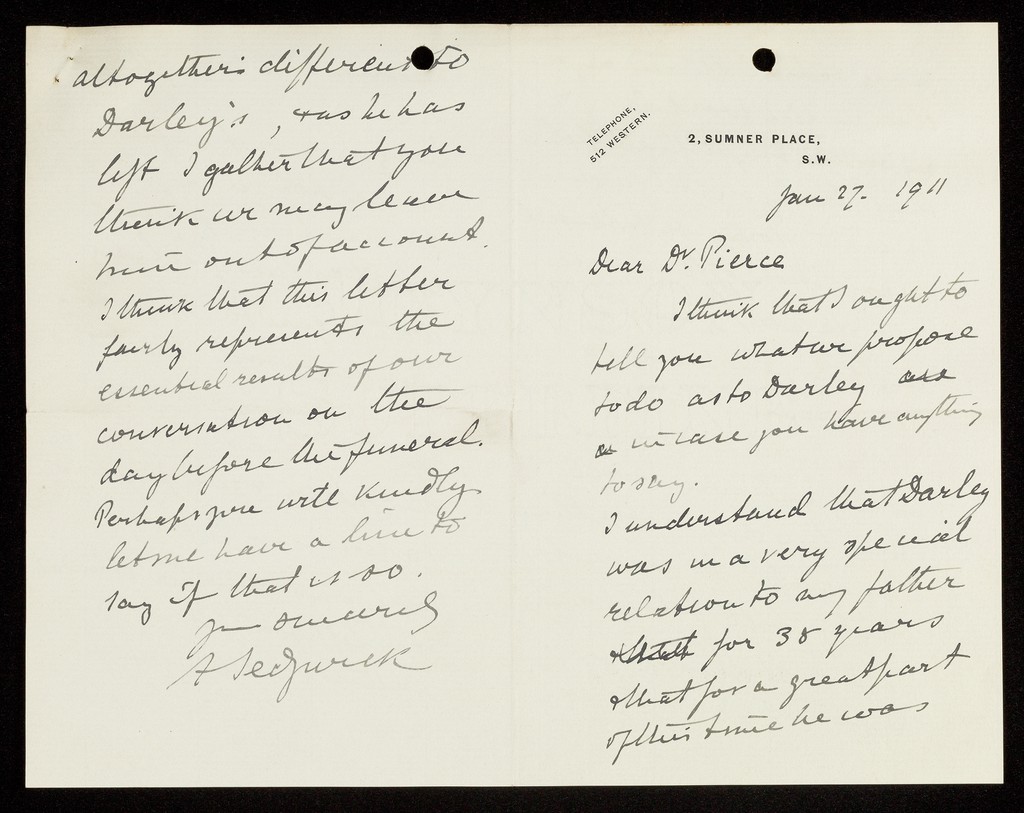 TELEPHONE,
512 WESTERN.
2, SUMNER PLACE,
S.W.
Jan 27. 1911
Dear Dr. Pierce
I think that I ought to
tell you what we propose
to do as to Darley
in case you have anything
to say.
I understand that Darley
was in a very special
relation to my father
for 38 years
& that for a great part
of this time he was
altogether different to
Darley's, & as he has
left I gather that you
think we may leave
him out of account.
I think that this letter
fairly represents the
essential results of our
conversation on the
day before the funeral.
Perhaps you will kindly
let me have a line to
say if that is so.
Yrs sincerely
A Sedgwick